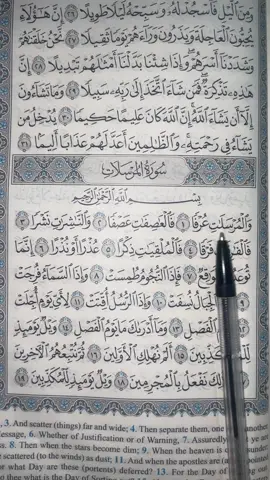 وَمِنَ ٱلَّيْلِ فَٱسْجُدْ لَهُۥ وَسَبِّحْهُ لَيْلًا طَوِيلًا ٢٦ إِنَّ هَٰٓؤُلَآءِ
يُحِبُّونَ ٱلْعَاجِلَةَ وَيَذَرُونَ وَرَآءَهُمْ يَوْمًا ثَقِيلًا ٢٧ نَّحْنُ خَلَقْنَٰهُمْ
وَشَدَدْنَآ أَسْرَهُمْ وَإِذَا شِئْنَا بَدَّلْنَآ أَمْثَٰلَهُمْ تَبْدِيلًا ٢٨ إِنَّ
هَٰذِهِۦ تَذْكِرَةٌ فَمَن شَآءَ ٱتَّخَذَ إِلَىٰ رَبِّهِۦ سَبِيلًا ٢٩ وَمَا تَشَآءُونَ
إِلَّآ أَن يَشَآءَ ٱللَّهُ إِنَّ ٱللَّهَ كَانَ عَلِيمًا حَكِيمًا ٣٠ يُدْخِلُ مَن
يَشَآءُ فِى رَحْمَتِهِۦ وَٱلظَّٰلِمِينَ أَعَدَّ لَهُمْ عَذَابًا أَلِيمًا ٣١
سُورَةُ المُرْسَلَات
بِسْمِ ٱللَّهِ ٱلرَّحْمَٰنِ ٱلرَّحِيمِ
وَٱلْمُرْسَلَٰتِ عُرْفًا ١ فَٱلْعَٰصِفَٰتِ عَصْفًا ٢ وَٱلنَّٰشِرَٰتِ نَشْرًا ٣
فَرْقًا ٤ فَٱلْمُلْقِيَٰتِ ذِكْرًا ٥ عُذْرًا أَوْ نُذْرًا ٦ إِنَّمَا
لَوَٰقِعٌ ٧ فَإِذَا ٱلنُّجُومُ طُمِسَتْ ٨ وَإِذَا ٱلسَّمَآءُ فُرِجَتْ
نُسِفَتْ ١٠ وَإِذَا ٱلرُّسُلُ أُقِّتَتْ ١١ لِأَىِّ يَوْمٍ أُجِّلَتْ
ٱلْفَصْلِ ١٣ وَمَآ أَدْرَىٰكَ مَا يَوْمُ ٱلْفَصْلِ ١٤ وَيْلٌ يَوْمَئِذٍ
أَلَمْ نُهْلِكِ ٱلْأَوَّلِينَ ١٦ ثُمَّ نُتْبِعُهُمُ ٱلْآخِرِينَ
نَفْعَلُ بِٱلْمُجْرِمِينَ ١٨ وَيْلٌ يَوْمَئِذٍ لِّلْمُكَذِّبِينَ ١٩
3. And scatter (things) far and wide; 4. Then separate them, one
6. Whether of Justification or of Warning, 7. Assuredly
8. Then when the stars become dim; 9. When the heaven is
scattered (to the winds) as dust; 11. And when the apostles are
what Day are these (portents) deferred? 13. For the Day of